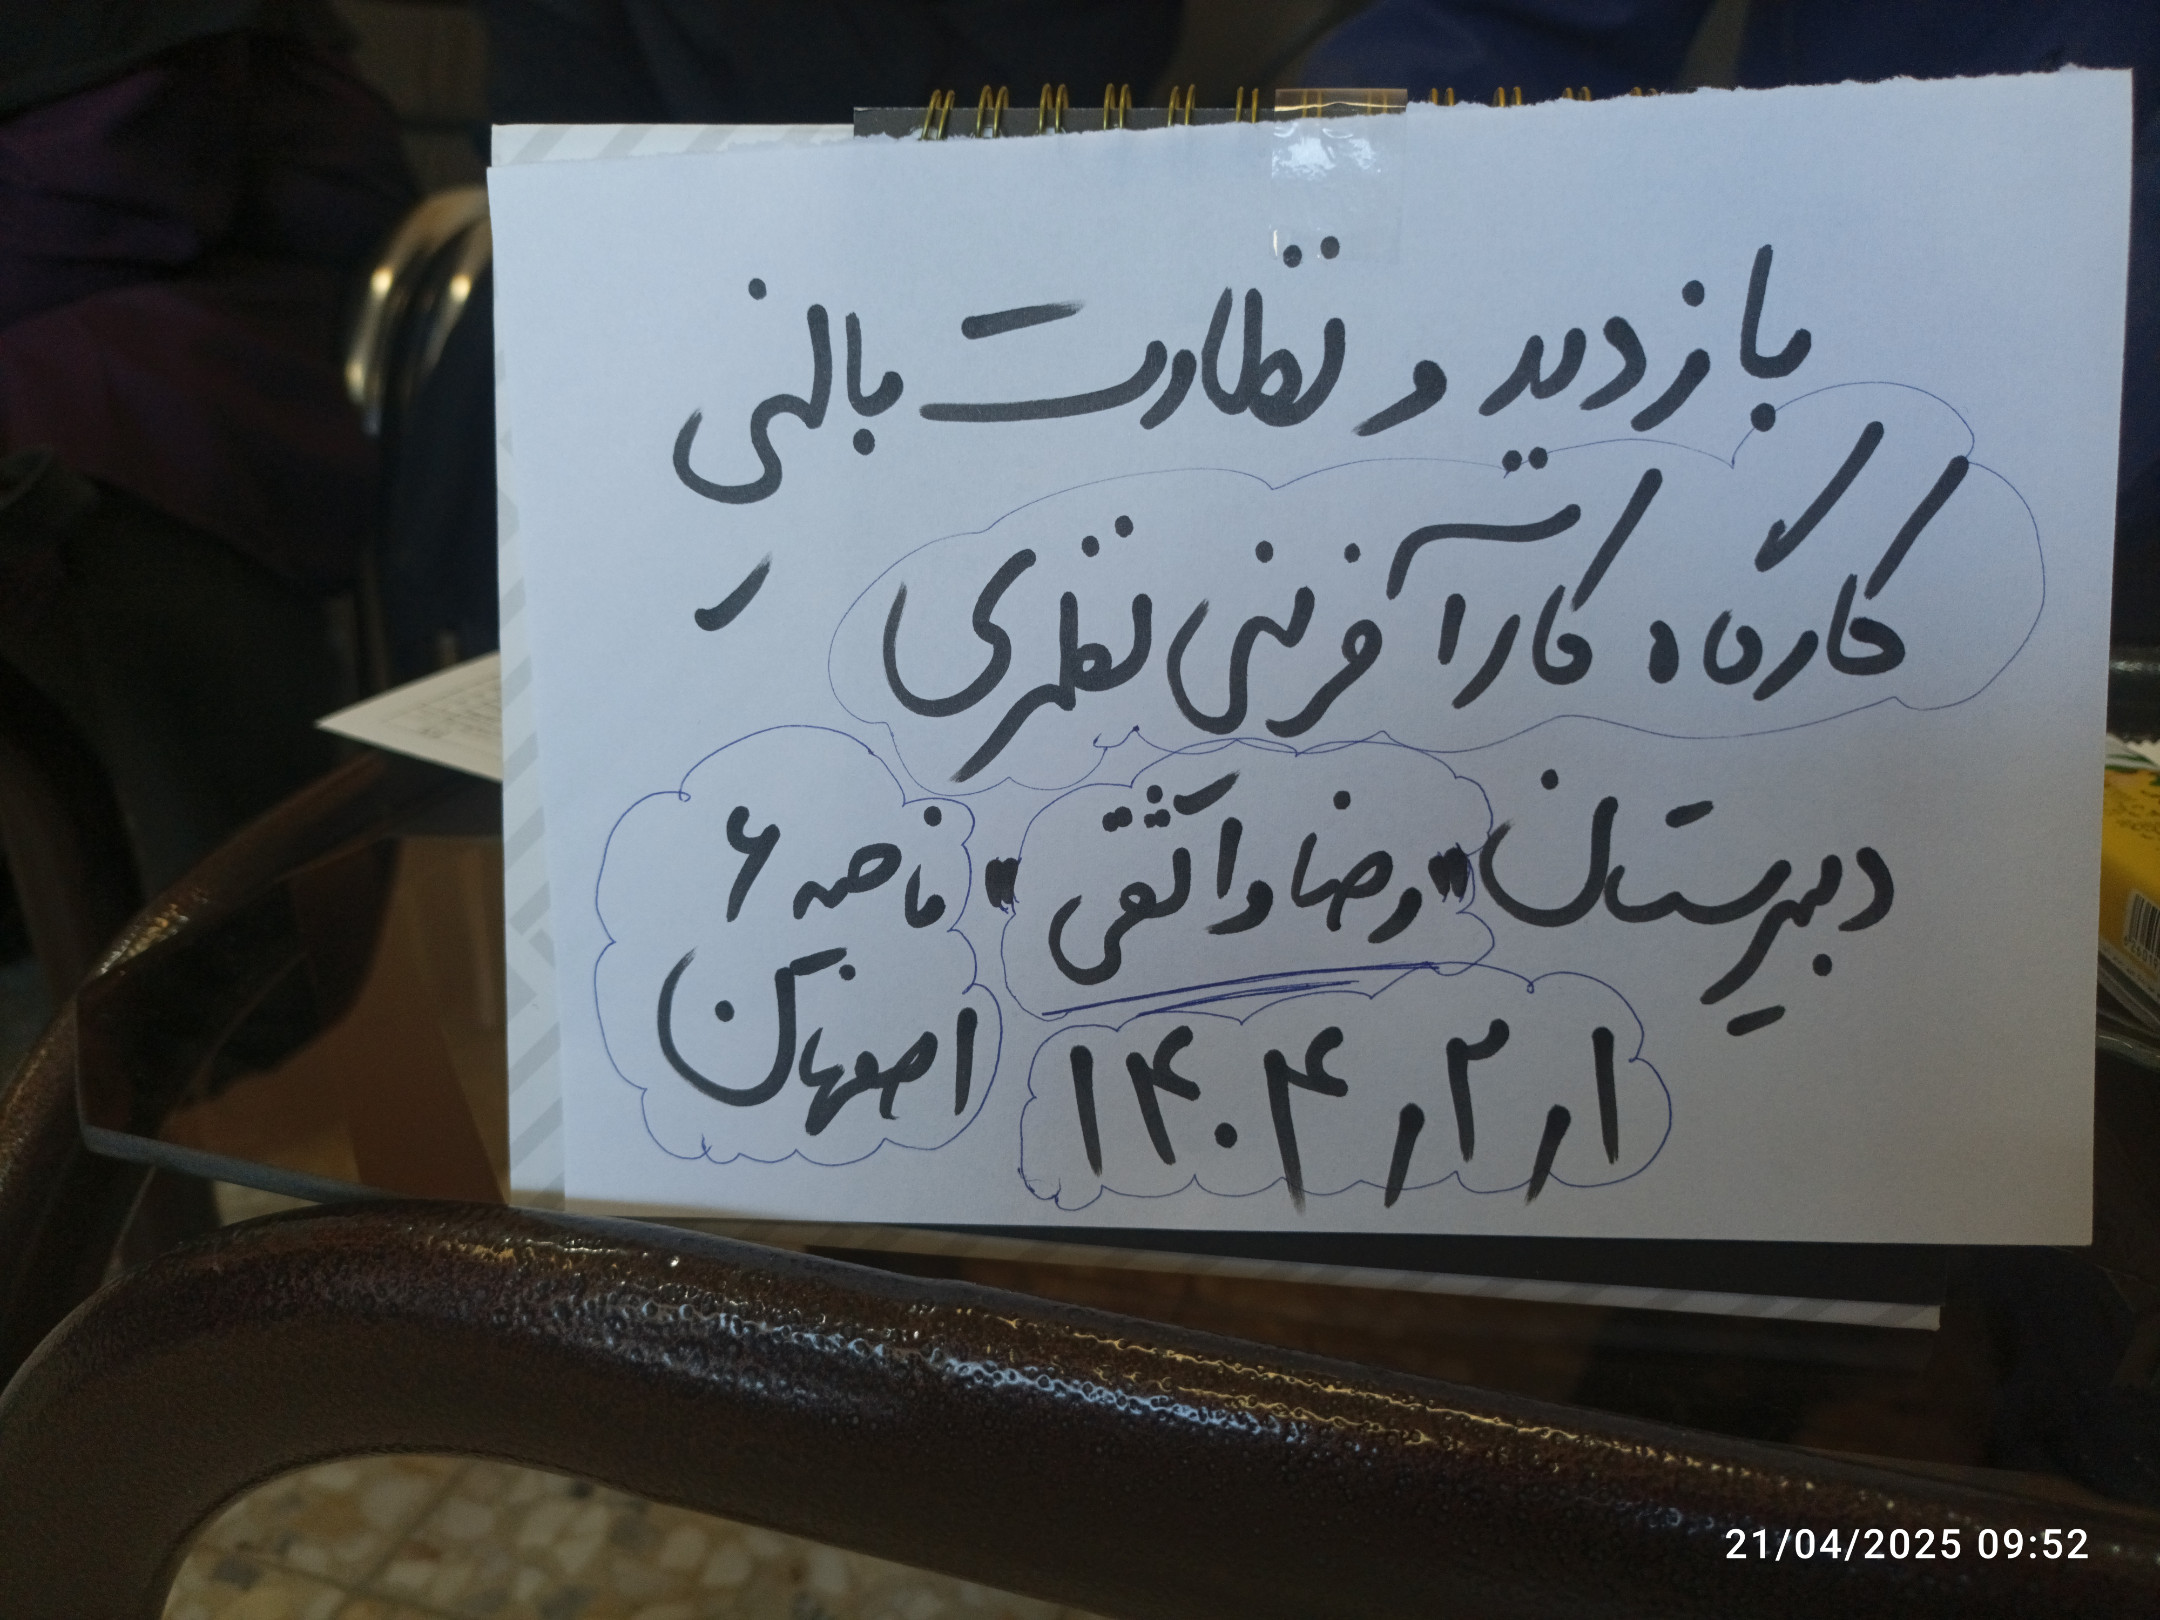 بازدید و نظارت بالینی
کارگاه کارآفرینی نظری
دبیرستان "رضا واثقی" ناحیه ۶
۱۴۰۴/۲/۱ اصفهان
21/04/2025 09:52